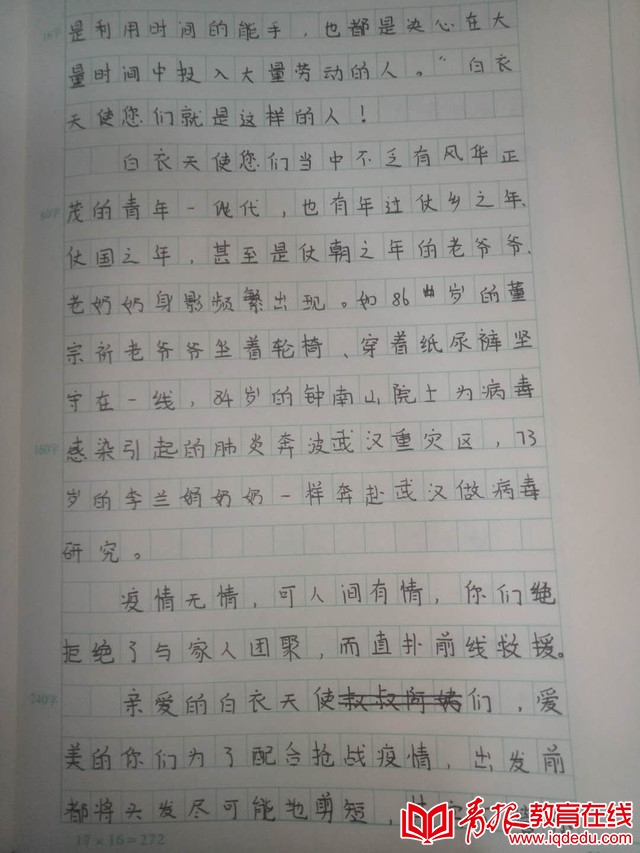 是利用时间的能手，也都是决心在大
量时间中投入大量劳动的人。”白衣
天使您们就是这样的人！
白衣天使您们当中不乏有风华正
80字
茂的青年一代，也有年过仗乡之年、
仗国之年，甚至是仗朝之年的老爷爷、
老奶奶身影频繁出现。如86岁的董
宗祈老爷爷坐着轮椅、穿着纸尿裤坚
守在一线，84岁的钟南山院士为病毒
160字
感染引起的肺炎奔波武汉重灾区，73
岁的李兰娟奶奶一样奔赴武汉做病毒
研究。
疫情无情，可人间有情，你们绝
拒绝了与家人团聚，而直扑前线救援。
240字
亲爱的白衣天使叔叔阿姨们，爱
美的你们为了配合抢战疫情，出发前
都将头发尽可能地剪短，
17×16=272
青报教育在线
www.iqdedu.com